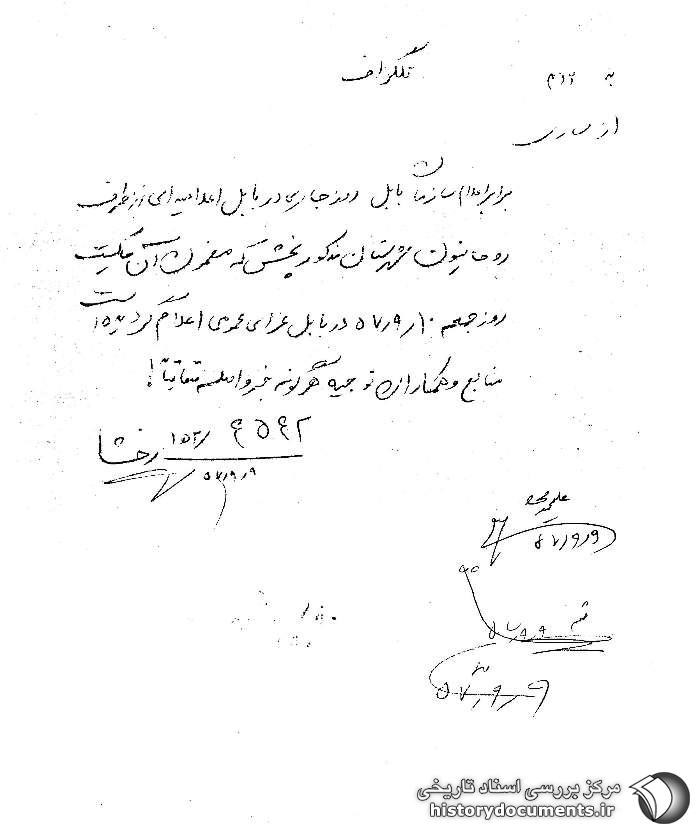 تلگراف
به ۳۱۲
از ساری
برابر اعلام سازمان بابل روز جاری در بابل اعلامیه ای از طرف
روحانیون شهرستان مذکور پخش که مضمون آن میگفت
روز جمعه ۵۷/۹/۱۰ در بابل عزای عمومی اعلام گردیده است
منابع و همکاران توجیه هرگونه خبر واصله متعاقبا!
۹۵۹۲
رخشا
۵۷/۹/۹
۵۷/۹/۹
۵۷/۹/۹
۵۷/۹/۹
مرکز بررسی اسناد تاریخی
historydocuments.ir